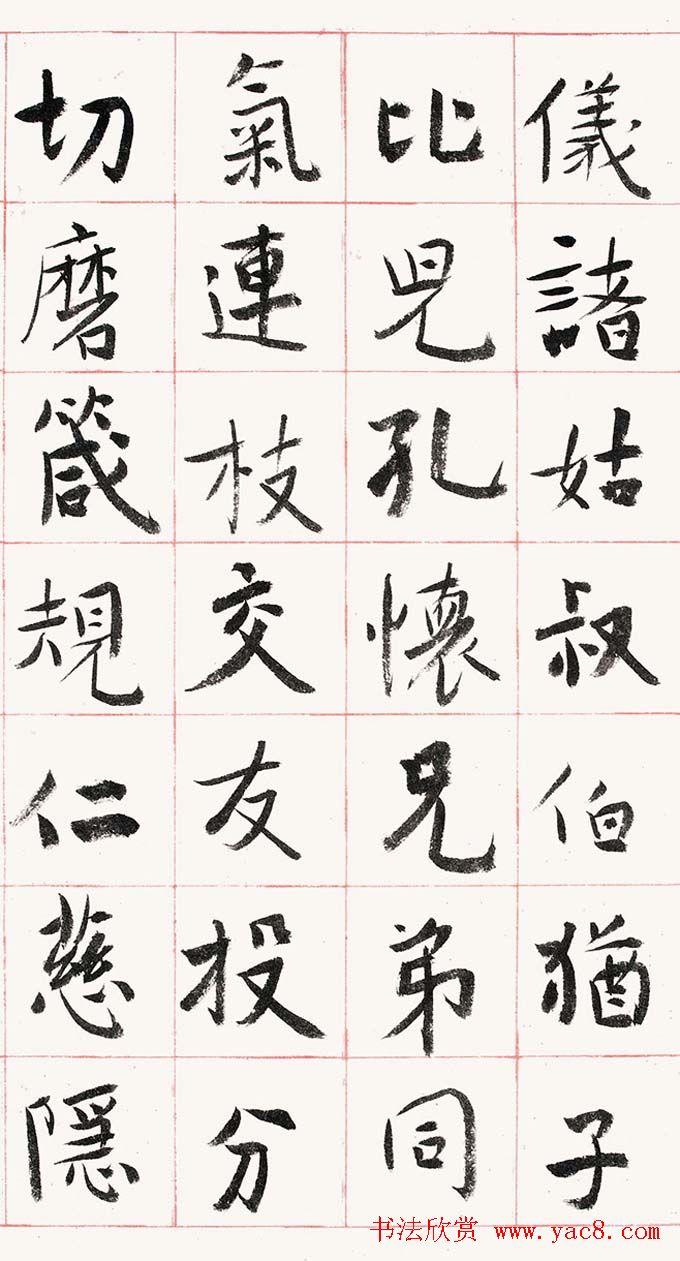 儀諸姑叔伯猶子
比兒孔懷兄弟同
氣連枝交友投分
切磨箴規仁慈隱
书法欣赏 www.yac8.com